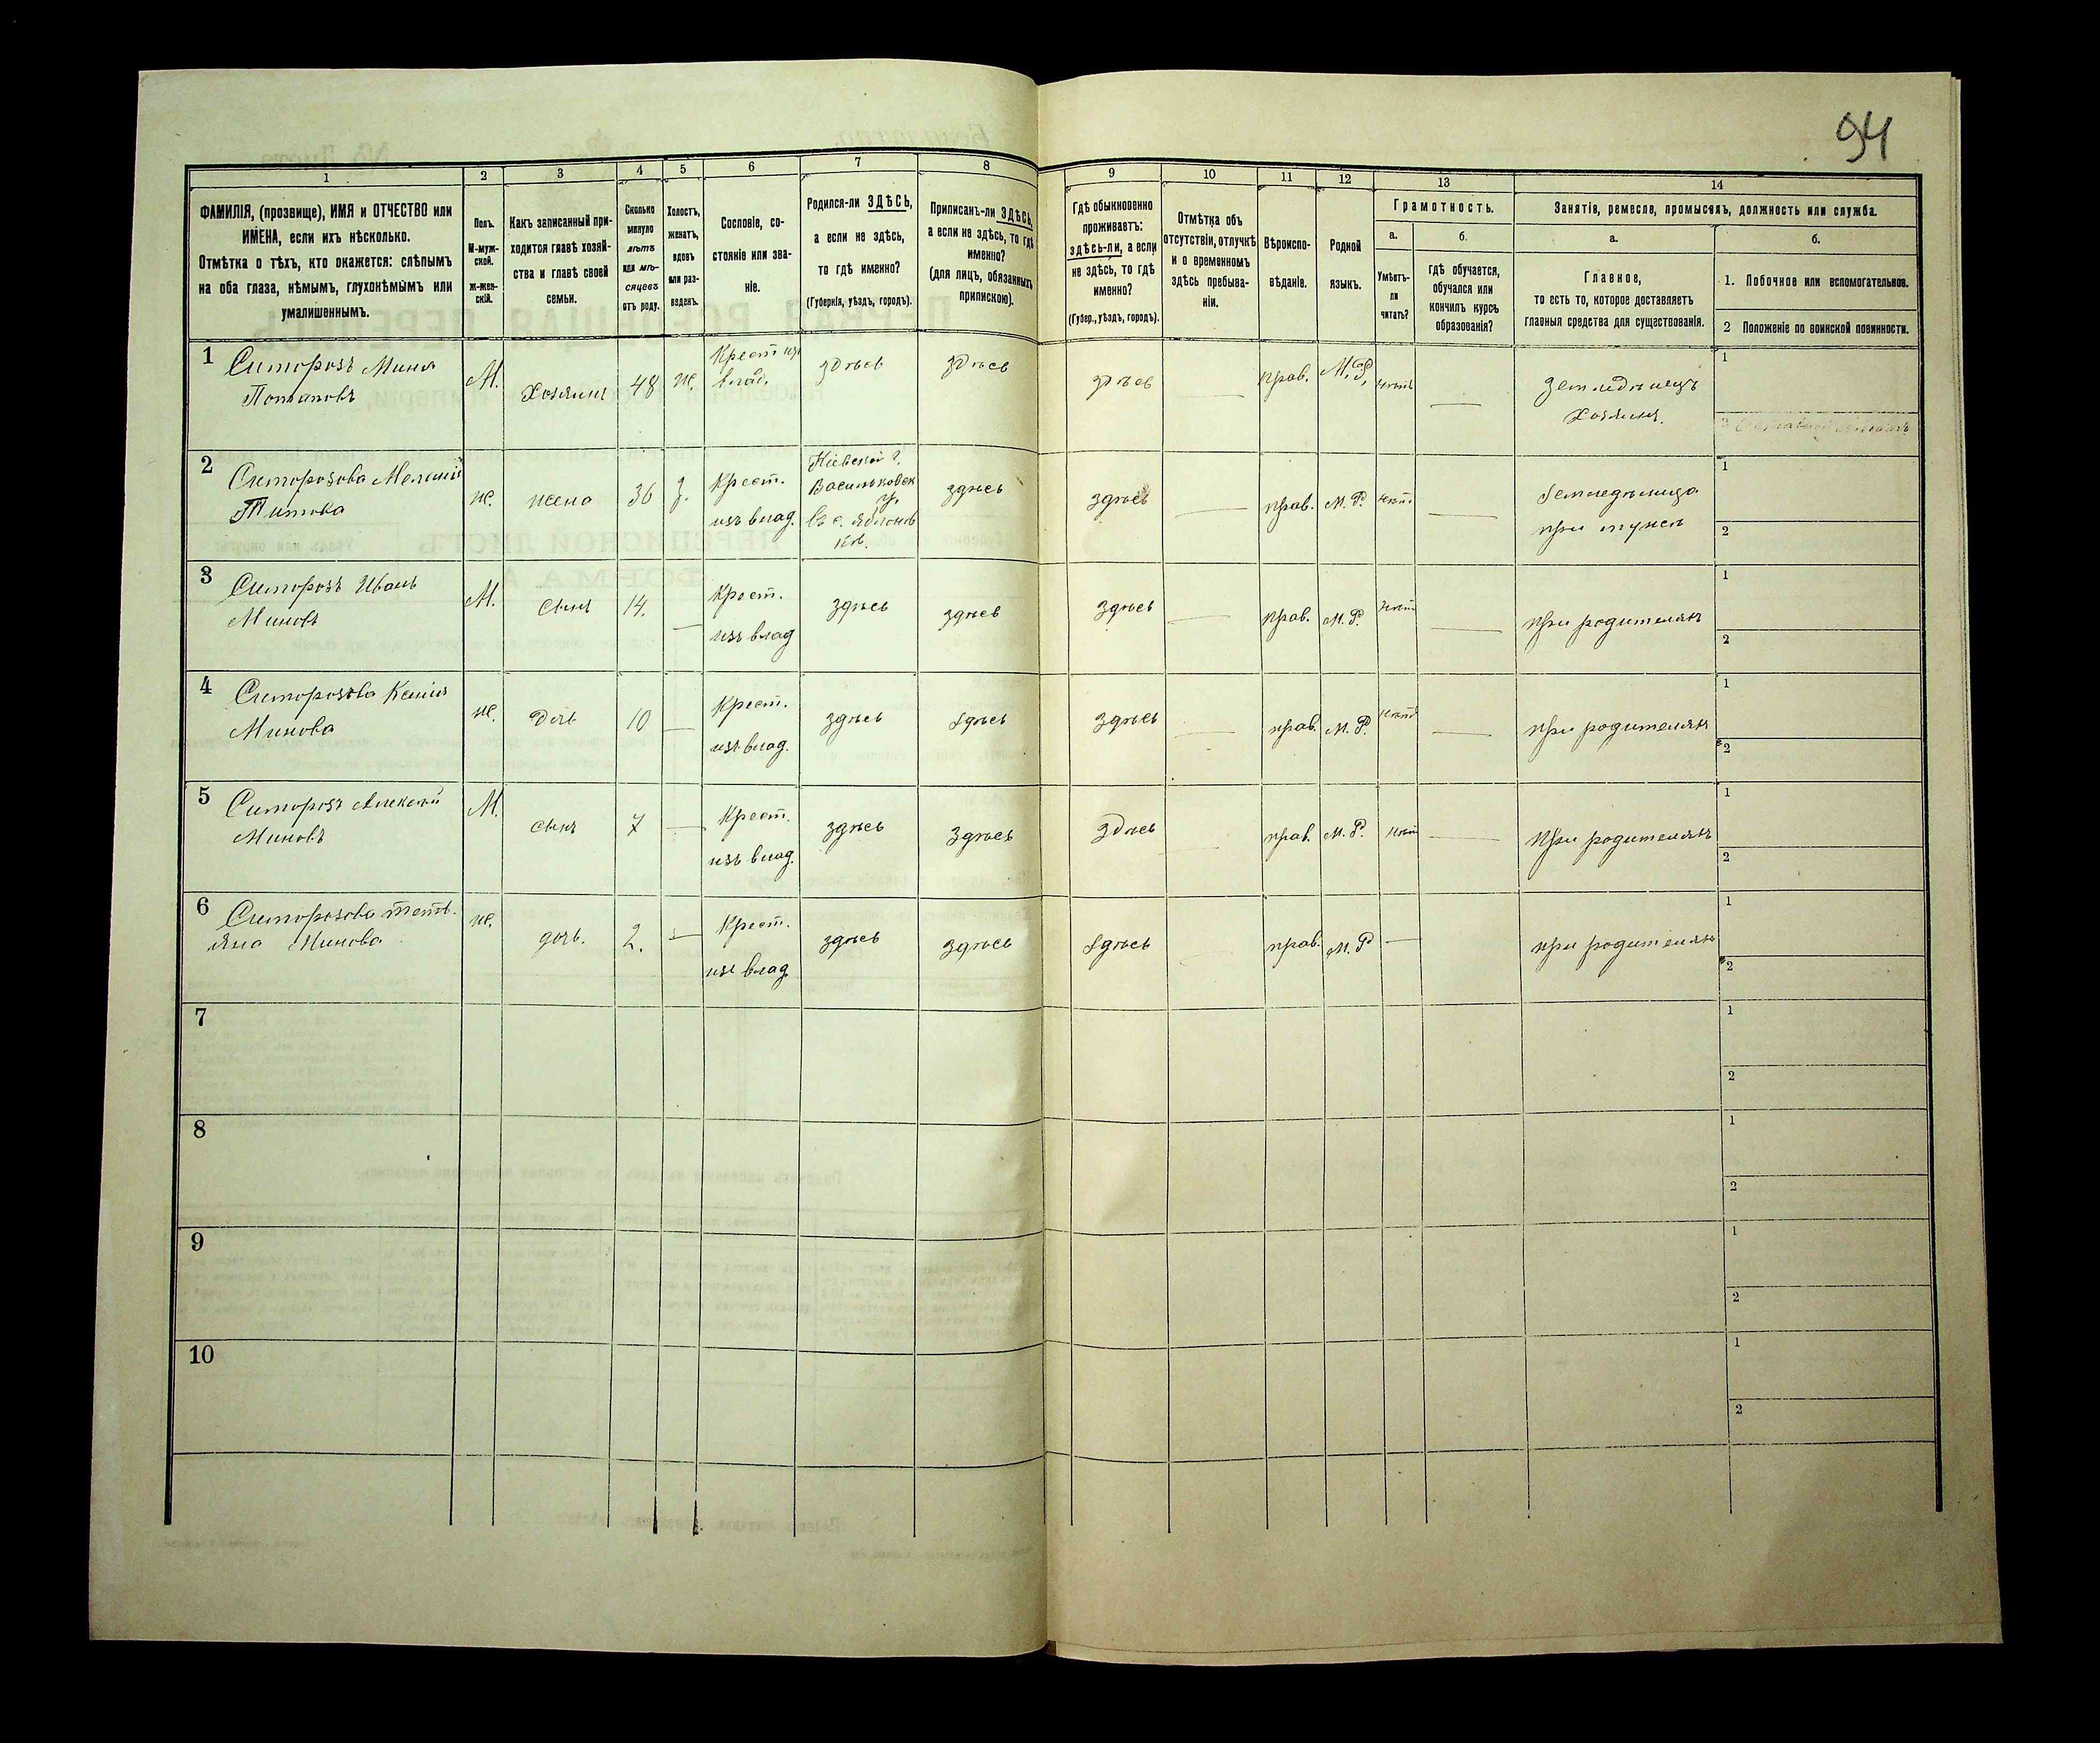 94
1
2
3
4
5
6
7
8
9
10
11
12
13
14
ФАМИЛІЯ, (прозвище), ИМЯ и ОТЧЕСТВО или
ИМЕНА, если ихъ нѣсколько.
Отмѣтка о тѣхъ, кто окажется: слѣпымъ
на оба глаза, нѣмымъ, глухонѣмымъ или
умалишеннымъ.
Полъ.
М-муж-
ской.
Ж-жен-
скій.
Какъ записанный при-
ходится главѣ хозяй-
ства и главѣ своей
семьи.
Сколько
минуло
лѣтъ
или мѣ-
сяцевъ
отъ роду.
Холостъ,
женатъ,
вдовъ
или раз-
веденъ.
Сословіе, со-
стояніе или зва-
ніе.
Родился-ли ЗДѢСЬ,
а если не здѣсь,
то гдѣ именно?
(Губернія, уѣздъ, городъ).
Приписанъ-ли ЗДѢСЬ,
а если не здѣсь, то гдѣ
именно?
(для лицъ, обязанныхъ
припискою).
Гдѣ обыкновенно
проживаетъ:
здѣсь-ли, а если
не здѣсь, то гдѣ
именно?
(Губер., уѣздъ, городъ).
Отмѣтка объ
отсутствіи, отлучкѣ
и о временномъ
здѣсь пребыва-
ніи.
Вѣроиспо-
вѣданіе.
Родной
языкъ.
Грамотность.
а.
Умѣетъ-
ли
читать?
б.
гдѣ обучается,
обучался или
кончилъ курсъ
образованія?
Занятія, ремесло, промыселъ, должность или служба.
а.
Главное,
то есть то, которое доставляетъ
главныя средства для существованія.
б.
1. Побочное или вспомогательное.
2 Положеніе по воинской повинности.
1
Мина
Потаповъ
М.
Хозяинъ
48
ж.
Крест. изъ
влад.
здѣсь
здѣсь
здѣсь
прав.
М. Р.
нѣтъ
земледѣлецъ
Хозяинъ.
1
2
2
Титова
ж.
жена
36
з.
Крест.
изъ влад.
Кіевской г.
Васильковск
у.
здѣсь
здѣсь
прав.
М. Р.
нѣтъ
земледѣлица
при мужѣ
1
2
3
Иванъ
Миновъ
М.
сынъ
14.
Крест.
изъ влад
здѣсь
здѣсь
здѣсь
прав.
М. Р.
нѣтъ
при родителяхъ
1
2
4
Ксенія
Минова
ж.
дочь
10
Крест.
изъ влад.
здѣсь
здѣсь
здѣсь
прав.
М. Р.
нѣтъ
при родителяхъ
1
2
5
Алексѣй
Миновъ
М.
сынъ
7
Крест.
изъ влад.
здѣсь
здѣсь
здѣсь
прав.
М. Р.
нѣтъ
При родителяхъ
1
2
6
Тать-
яна Минова
ж.
дочь.
2.
Крест.
изъ влад
здѣсь
здѣсь
здѣсь
прав.
М. Р
при родителяхъ
1
2
7
1
2
8
1
2
9
1
2
10
1
2